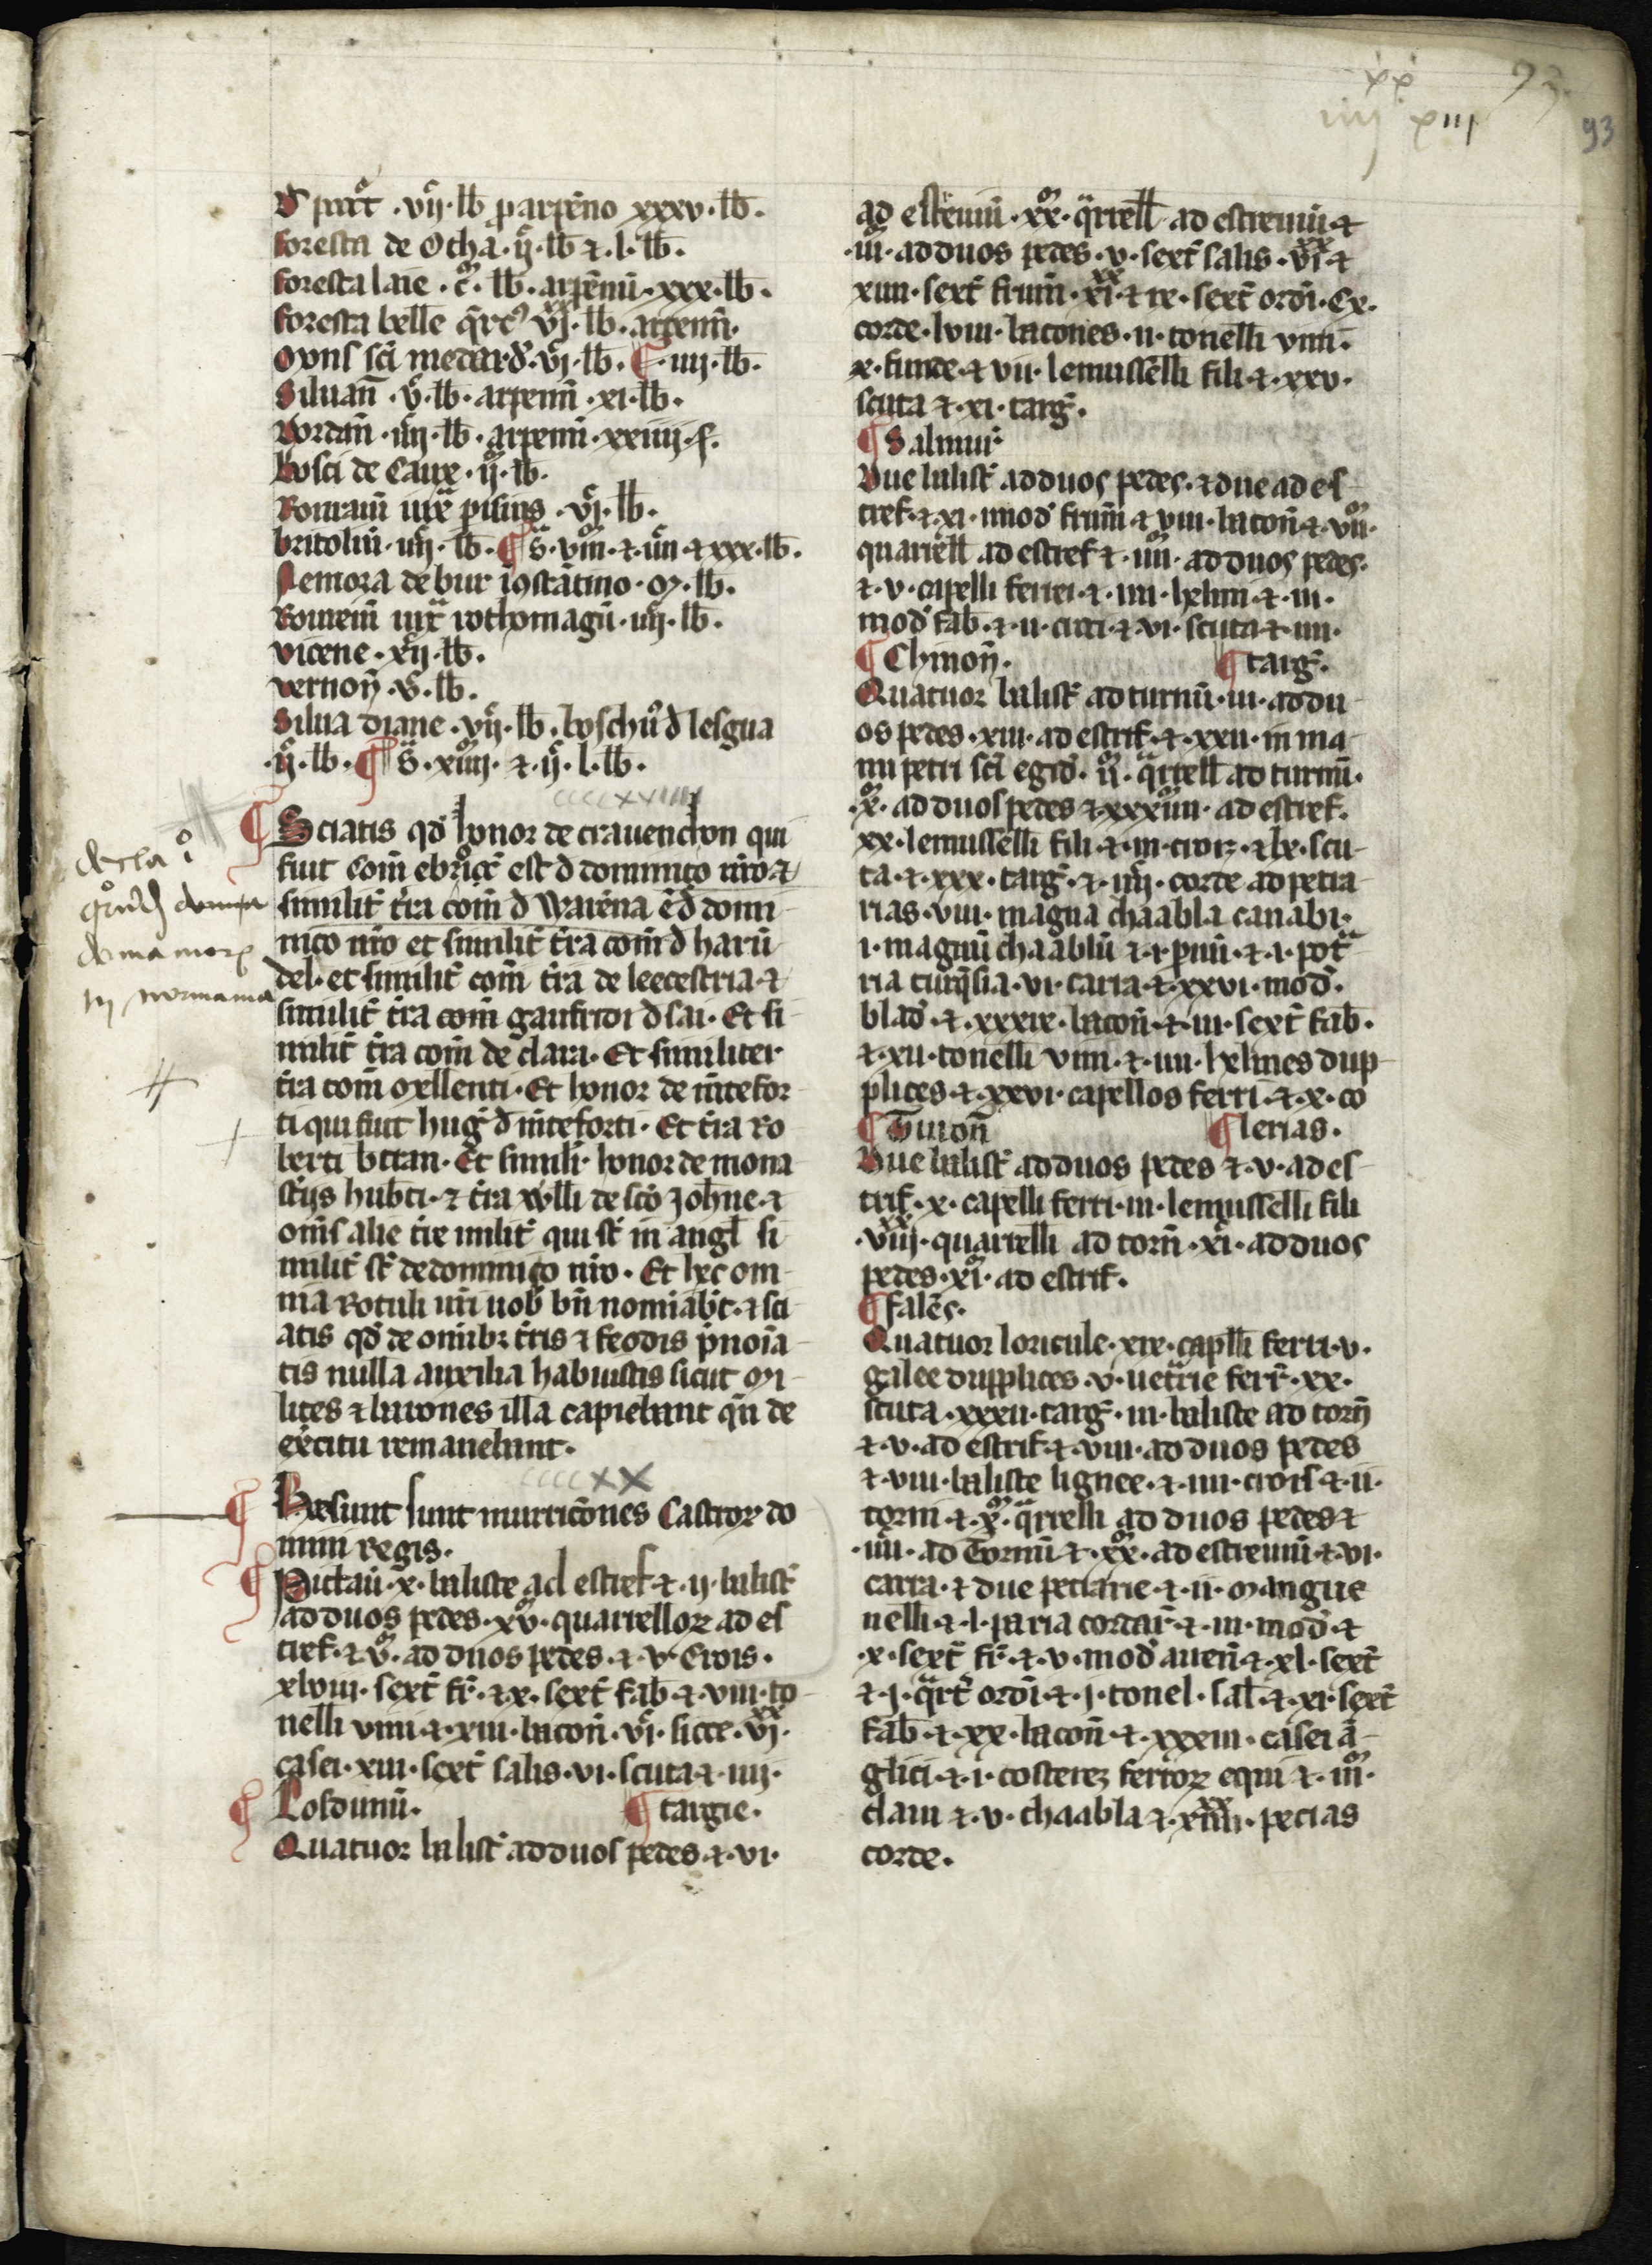 xx
iiij xiij
93
93
foresta de Otha · ij · lb ⁊ · l · lb ·
foresta laie · c · lb · arpēnū · xxx · lb ·
foresta belle · lb · arpenn̄ ·
Ovns sci medard · vj · lb · ¶ · iiij · lb ·
Siluan̄ · v · lb · arpenn̄ · xi · lb ·
Bordin̄ · iiij · lb · arpenn̄ · xxiiij · s ·
bosci de Caux · ij · lb ·
Romain̄ iux · vj · lb ·
britoliū · iiij · lb · ¶ S · viij · ⁊ · iiij · ⁊ xxx · lb ·
Nemora de bur · lb ·
Roment̄ iux rothomagū · iiij · lb ·
vicene · xij · lb ·
vernon̄ · v · lb ·
Silua diane · vij · lb · boschū d lesgua
· ij · lb · ¶ S · xiiij · ⁊ · ij · l · lb ·
ccccxviiij
¶ Sciatis qd honor de crauenchon qui
fuit com̄ ebroic̄ est d dominico nr̄o ⁊
similit t̄ra com̄ d Warēna ē d domi
nico nr̄o et similit t̄ra com̄ d harū
del · et similit com̄ t̄ra de leecestria · ⁊
similit t̄ra com̄ gaufridi d sai · Et si
milit t̄ra com̄ de clara · Et similiter
t̄ra com̄ oxllenti · Et honor de mōtefor
ti qui fuit hug d mōteforti · Et t̄ra Ro
berti btran · Et simili · honor de mona
st̄ijs hub̄ti · ⁊ t̄ra Will̄i de sc̄o Joh̄ne · ⁊
om̄s alie t̄re milit qui st̄ in angl̄ si
milit st̄ de dominico nr̄o · Et hec om
nia Rotuli nr̄i uob bn̄ nomīab̄t · ⁊ sci
atis qd de omnib; t̄ris ⁊ feodis p̄noīa
tis nulla auxilia habuistis sicut mi
lites ⁊ barones illa capiebant qn̄ de
exercitu remanebant ·
ccccxx
¶ Hec sunt sunt munitiones Castror; do
mini regis ·
¶ Pictau · x · baliste ad estref · ⁊ · ij · balist
ad duos pedes · xv · quarrellor; ad es
tref · ⁊ v · ad duos pedes · ⁊ · v · Crois ·
xlviii · sext fr̄ · ⁊ x · sext fab · ⁊ viii · to
nelli vini · ⁊ · xiii · bacon̄ · vj · sicce · vj ·
casei · xiii · sext salis · vi · scuta · ⁊ · iiij ·
¶ Losdunū · ¶ targie ·
Quatuor balist ad duos pedes · ⁊ · vi ·
ad estreuiū · xx · q̄rrell ad estreuiū · ⁊
· iii · ad duos pedes · v · sext salis · vi · ⁊
xiiii · sext frum̄ · xi · ⁊ ix · sext ordi · Cx ·
corde · lviii · bacones · ii · tonelli vini ·
x · funde · ⁊ vii · lemussēlli fili · ⁊ · xxv ·
scuta ⁊ · xi · targ ·
¶ Salmur
Due balist ad duos pedes · ⁊ due ad es
tref · ⁊ · xi · mod frum̄ · ⁊ viii · bacon̄ · ⁊ vii ·
quarrell ad estref · ⁊ · iiii · ad duos pedes ·
⁊ · v · capelli ferrei · ⁊ · iiii · helmi · ⁊ · iii ·
mod fab · ⁊ · ii · ⁊ · vi · scuta · ⁊ · iiii ·
¶ Chinon̄ · ¶ targ ·
Quatuor balist ad turnū · iii · ad du
os pedes · xiii · ad estrif · ⁊ · xxii · in ma
nu petri sci egid · ii · q̄rrell ad turnū ·
· x · ad duos pedes · ⁊ · xxxiiii · ad estref ·
xx · lemussēlli fili · ⁊ · iii · · ⁊ lx · scu
ta · ⁊ · xxx · targ · ⁊ · iiij · corde ad petra
rias · viii · magna chaabla canabi ·
i · magnū chaablū · ⁊ · i · p̄uū · ⁊ · i · pet
ria turq̄sia · vi · carra · ⁊ · xxvi · mod ·
blad · ⁊ · xxxix · bacon̄ · ⁊ · iii · sext fab ·
⁊ · xii · tonelli vini · ⁊ · iiii · helmes dup
plices · ⁊ · xxvi · capellos ferri · ⁊ · x · co
¶ Turon̄ ¶ lerias ·
Due balist ad duos pedes ⁊ · v · ad es
trif · x · capelli ferri · iii · lemussēlli fili
· viij · quarrelli ad torn̄ · xi · ad duos
pedes · xi · ad estrif ·
¶ fales ·
Quatuor loricule · xix · capll̄i ferri · v ·
galee dupplices · v · uētrie ferr · xx ·
scuta · xxxii · targ · iii · baliste ad torn̄
⁊ · v · ad estrif · ⁊ · viii · ad duos pedes
⁊ · viii · baliste lignee · ⁊ · iiii · crois · ⁊ · ii ·
torni · ⁊ · x · q̄rrelli ad duos pedes ⁊
· iiii · ad Tornū · ⁊ · xx · ad estreuiū · ⁊ · vi ·
carra · ⁊ due petrarie · ⁊ · ii · mangue
nelli · ⁊ · l · paria cordar · ⁊ · iii · mod · ⁊
· x · sext fr̄ · ⁊ · v · mod auen̄ · ⁊ · xl · sext
⁊ · j · q̄rt ordi · ⁊ · j · tonel · sal · ⁊ · xi · sext
fab · ⁊ · xx · bacon̄ · ⁊ · xxxiii · casei ā
glici · ⁊ · i · costerez ferror; equi · ⁊ · iii ·
claui ⁊ · v · chaabla · ⁊ · xiiii · pecias
corde ·